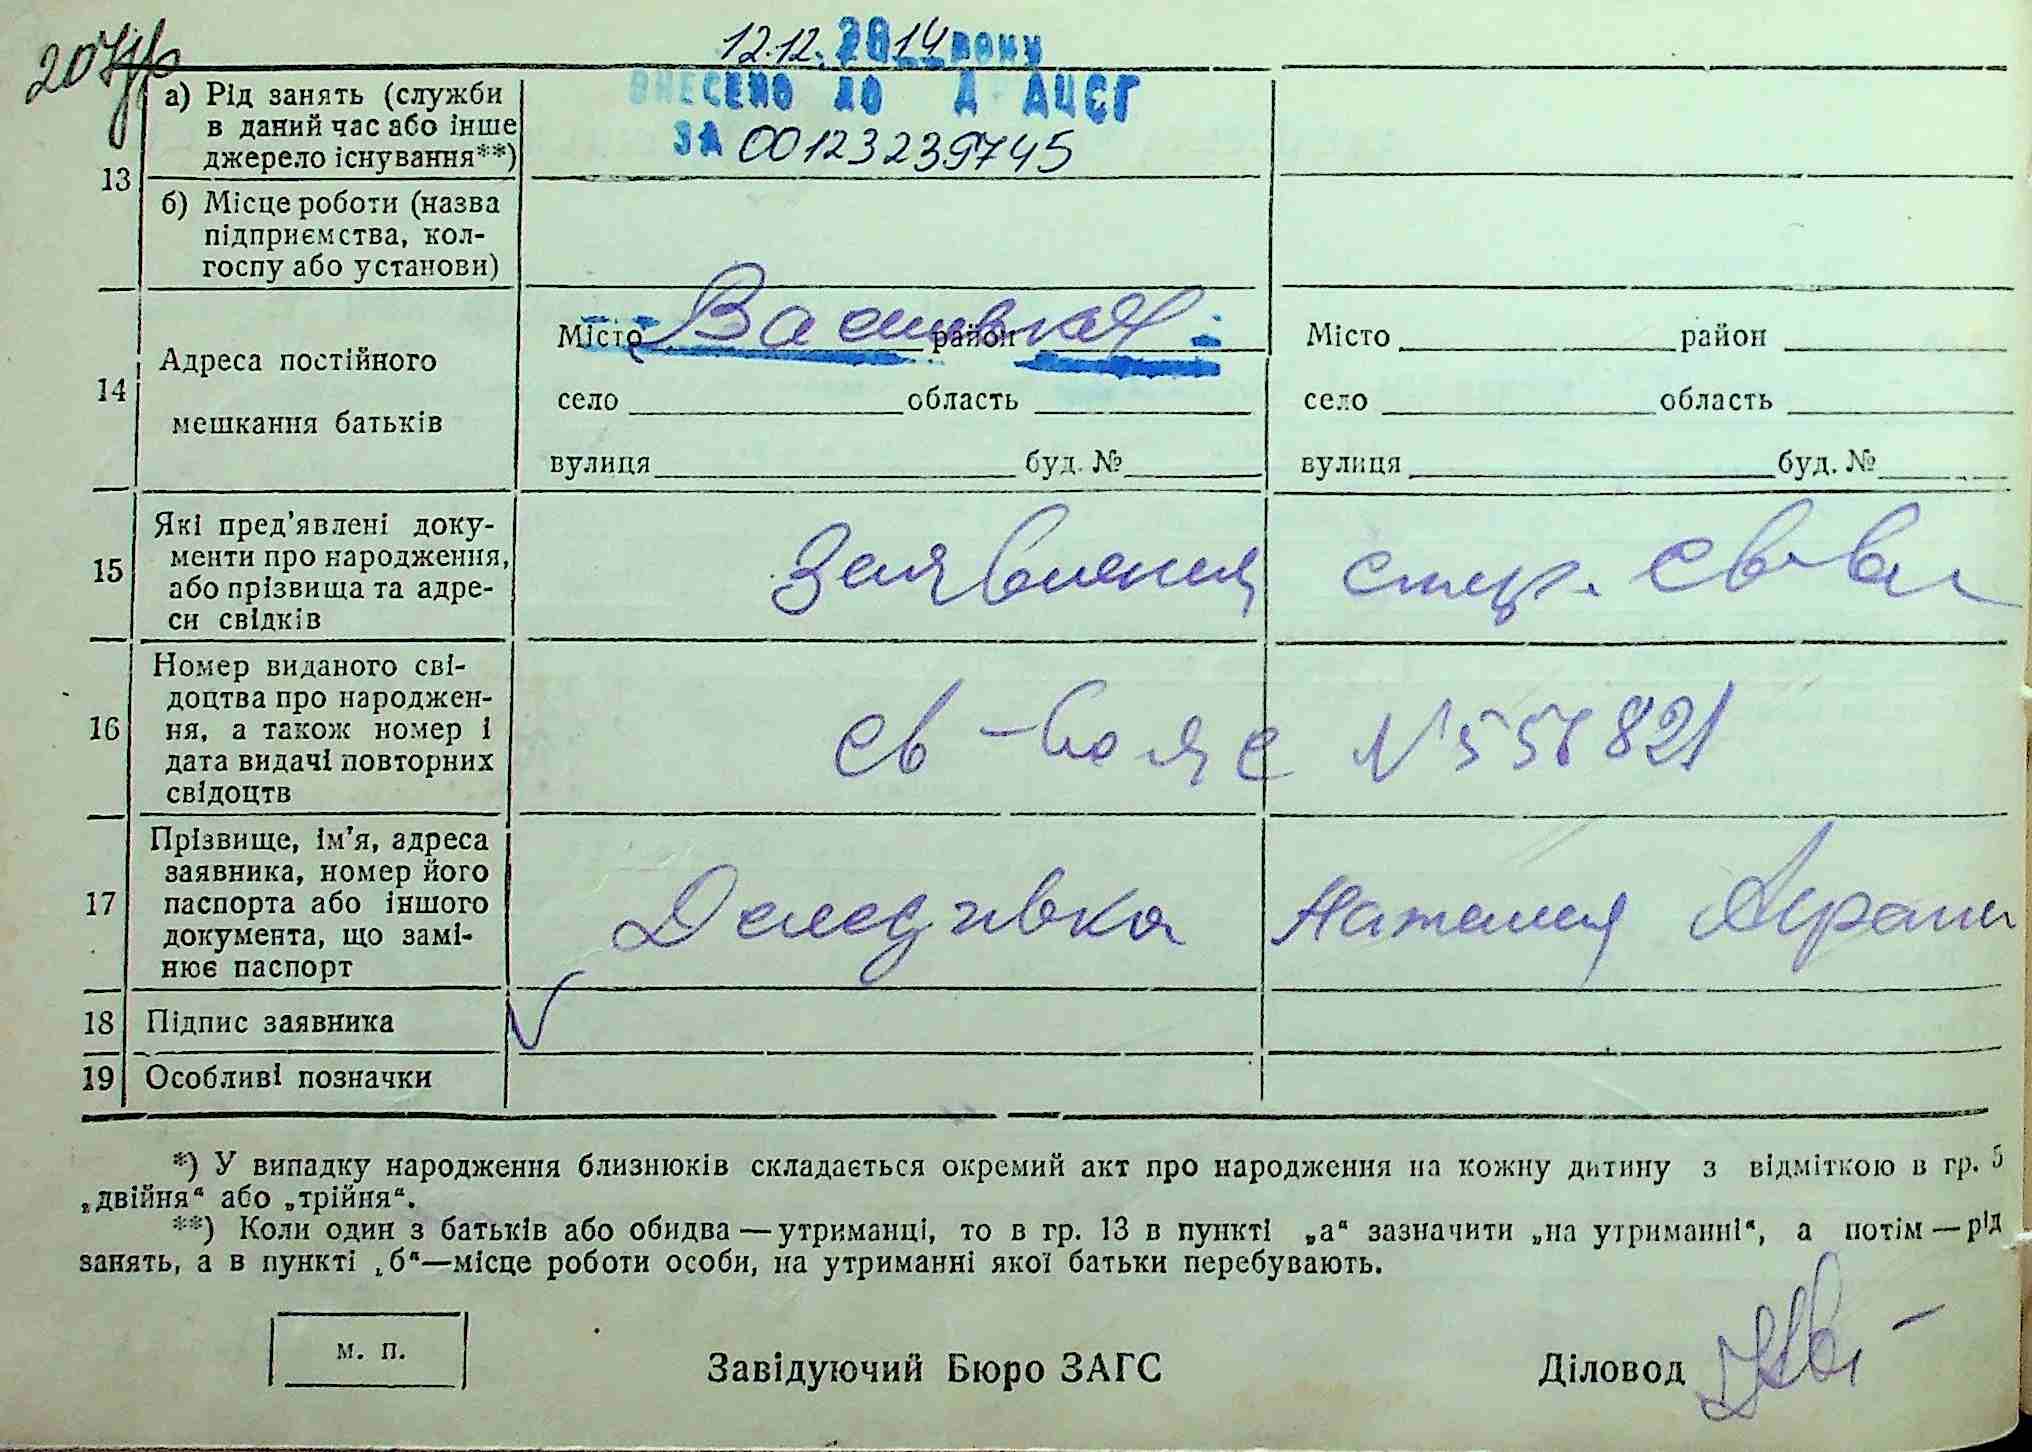 12.12.2014 року
ВНЕСЕНО ДО Д АЦСГ
ЗА 00123239745
13
а) Рід занять (служби
в даний час або інше
джерело існування**)
б) Місце роботи (назва
підприємства, кол-
госпу або установи)
14
Адреса постійного
мешкання батьків
Місто район
село область
вулиця буд. №
Місто район
село область
вулиця буд. №
15
Які пред’явлені доку-
менти про народження,
або прізвища та адре-
си свідків
Заявления
16
Номер виданого сві-
доцтва про народжен-
ня, а також номер і
дата видачі повторних
свідоцтв
св
17
Прізвище, ім’я, адреса
заявника, номер його
паспорта або іншого
документа, що замі-
нює паспорт
Наталия
18
Підпис заявника
19
Особливі позначки
*) У випадку народження близнюків складається окремий акт про народження на кожну дитину з відміткою в гр. 5
„двійня“ або „трійня“.
**) Коли один з батьків або обидва — утриманці, то в гр. 13 в пункті „а“ зазначити „на утриманні“, а потім — рід
занять, а в пункті „б“—місце роботи особи, на утриманні якої батьки перебувають.
м. п.
Завідуючий Бюро ЗАГС
Діловод